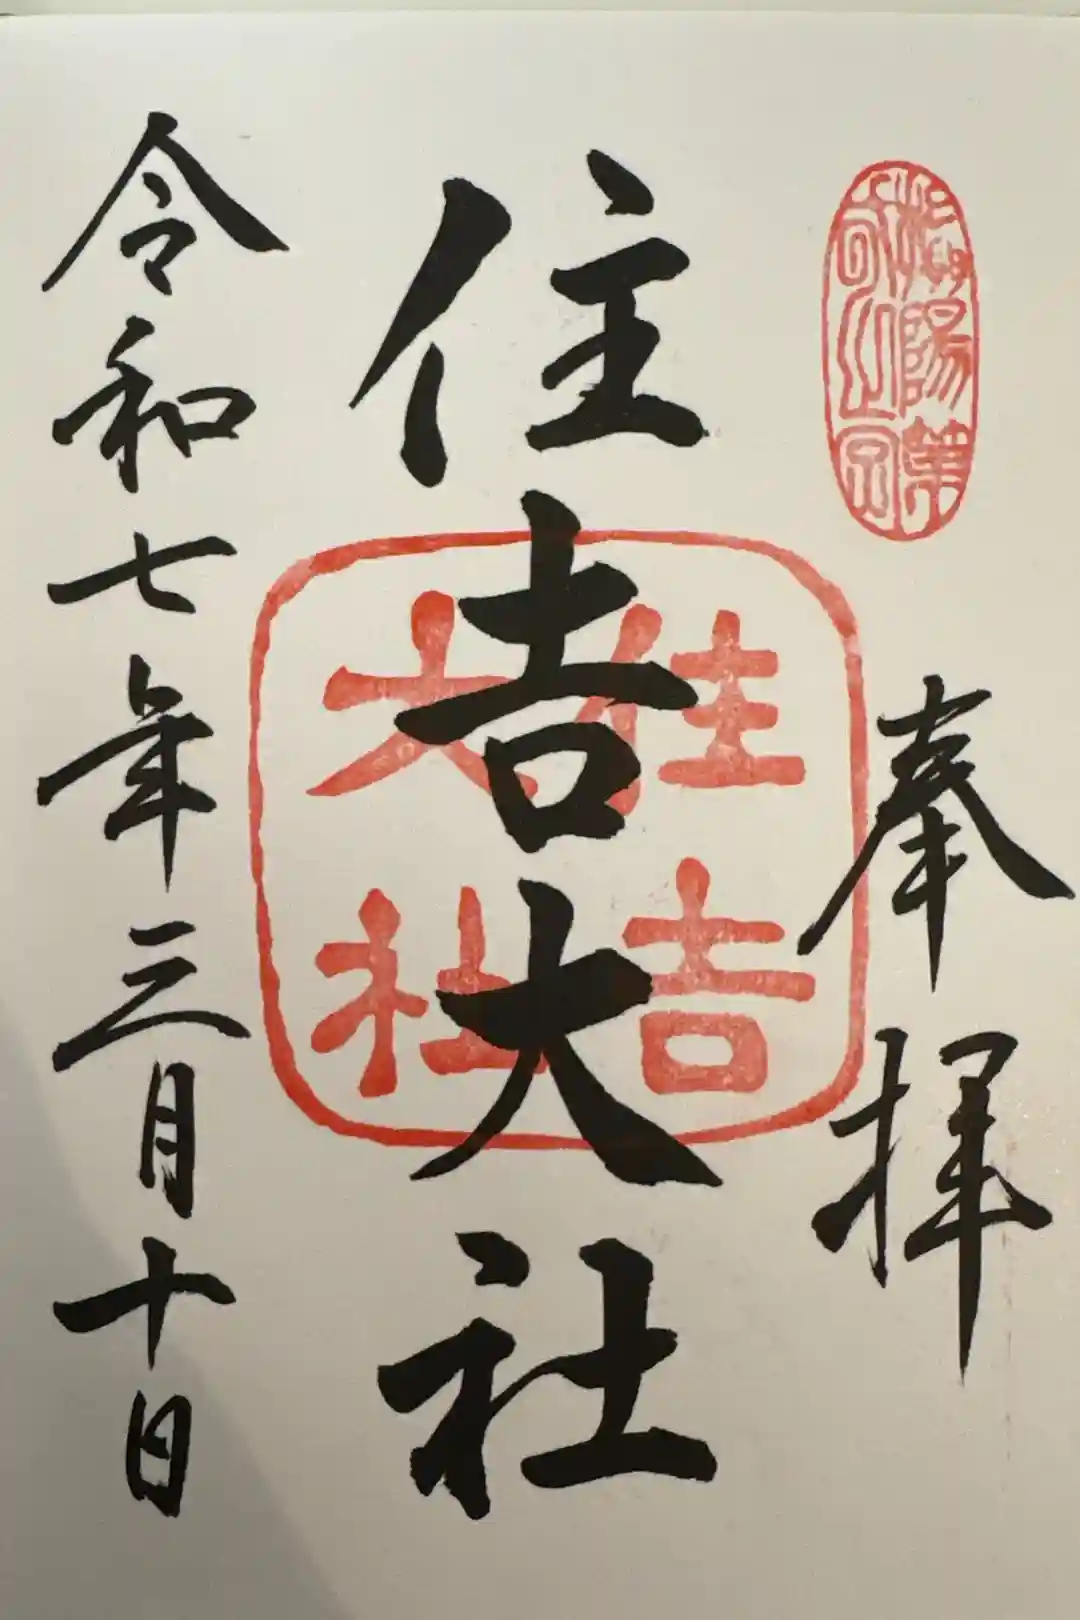 奉拝
住吉大社
住吉大社
令和七年三月十日